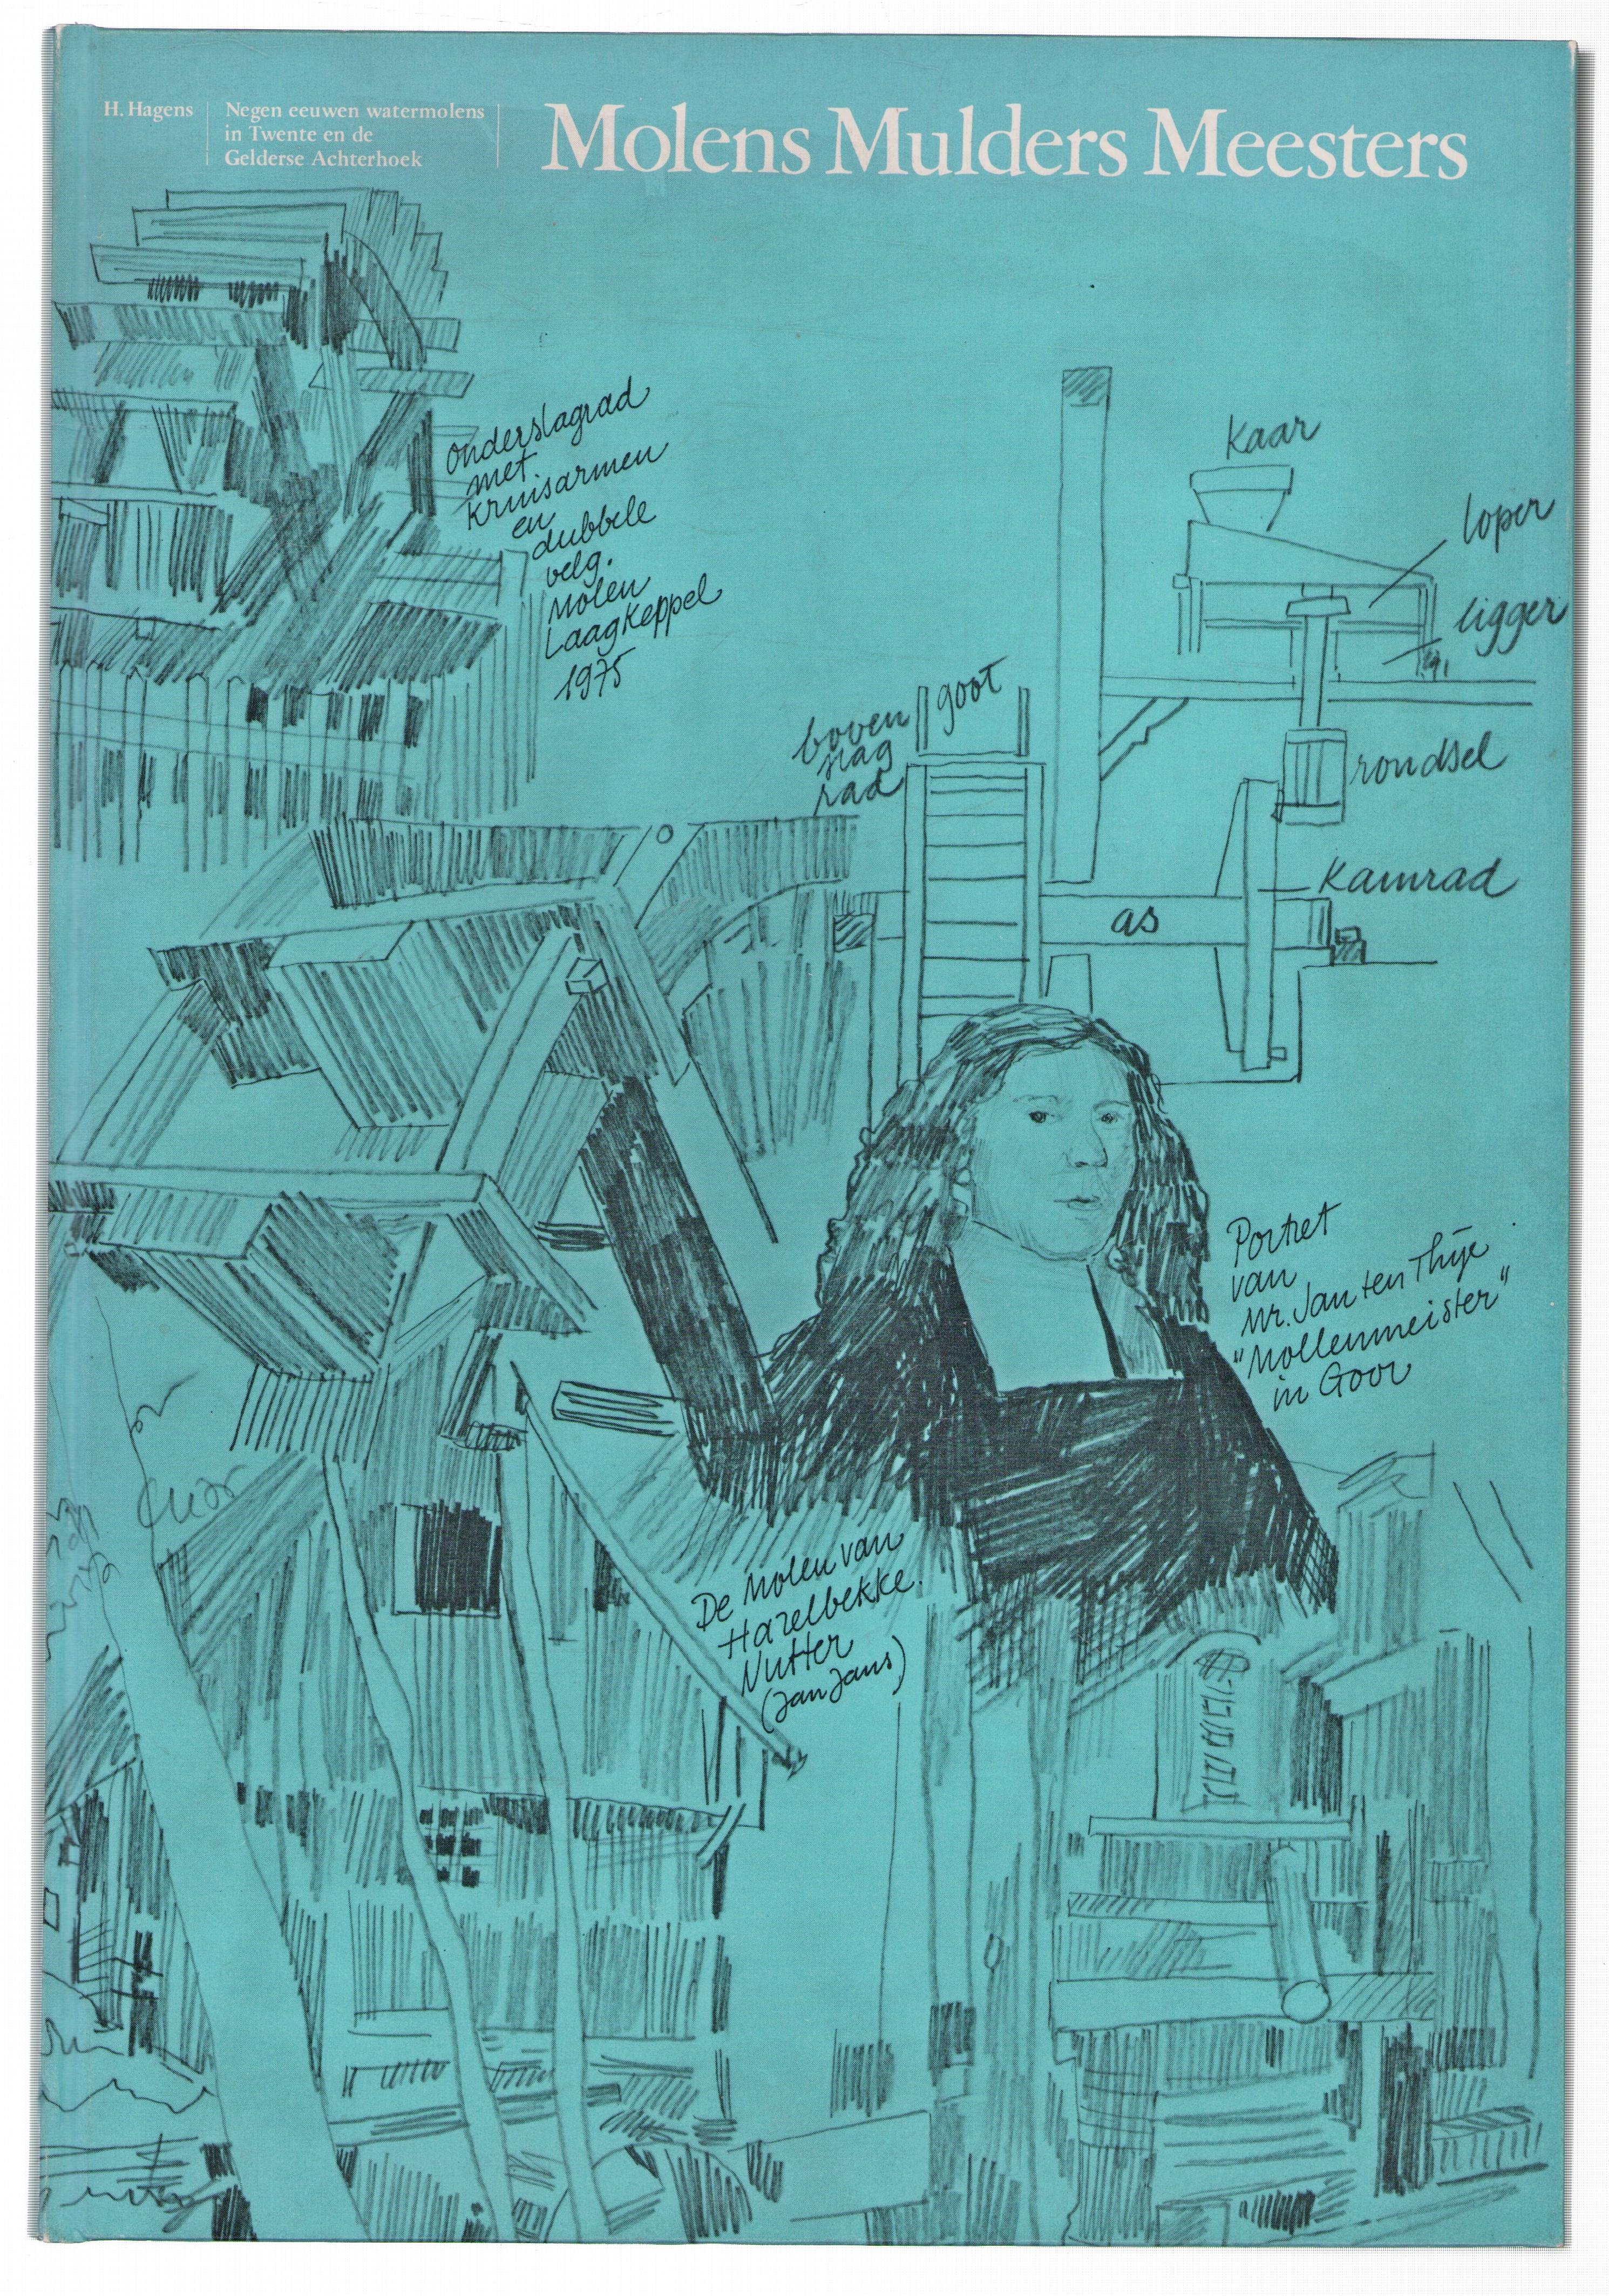 H. Hagens
Negen eeuwen watermolens
in Twente en de
Gelderse Achterhoek
Molens Mulders Meesters
onderslagrad
met
kruisarmen
en
dubbele
velg.
Molen
Laagkeppel
1975
kaar
loper
ligger
goot
boven
slag
rad
rondsel
kamrad
as
Portret
van
Mr. Jan ten Thije
"Mollenmeister"
in Goor
De Molen van
Hazelbekke.
Nutter
(Jan Jans)